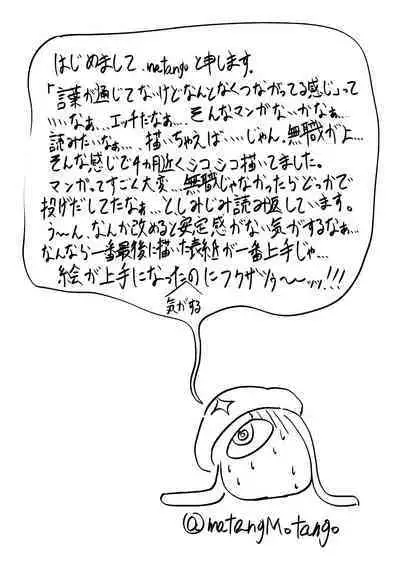 はじめまして.matangoと申します。
「言葉が通じてないけどなんとなくつながってる感じ」って
いいなぁ…エッチだなぁ…そんなマンガないかなぁ…
読みたいなぁ…、描いちゃえば…いいじゃん。無職が上…
そんな感じで4カ月近くシコシコ描いてました。
マンガってすごく大変…無職じゃなかったらどっかで
投げだしてたなぁ…としみじみ読み返しています。
う〜ん、なんか改めると安定感がない気がするなぁ…
なんなら一番最後に描いた表紙が一番上手じゃ…
絵が上手になったのにフクザツゥ〜〜ッッ!!!
気がする
@matangMotango